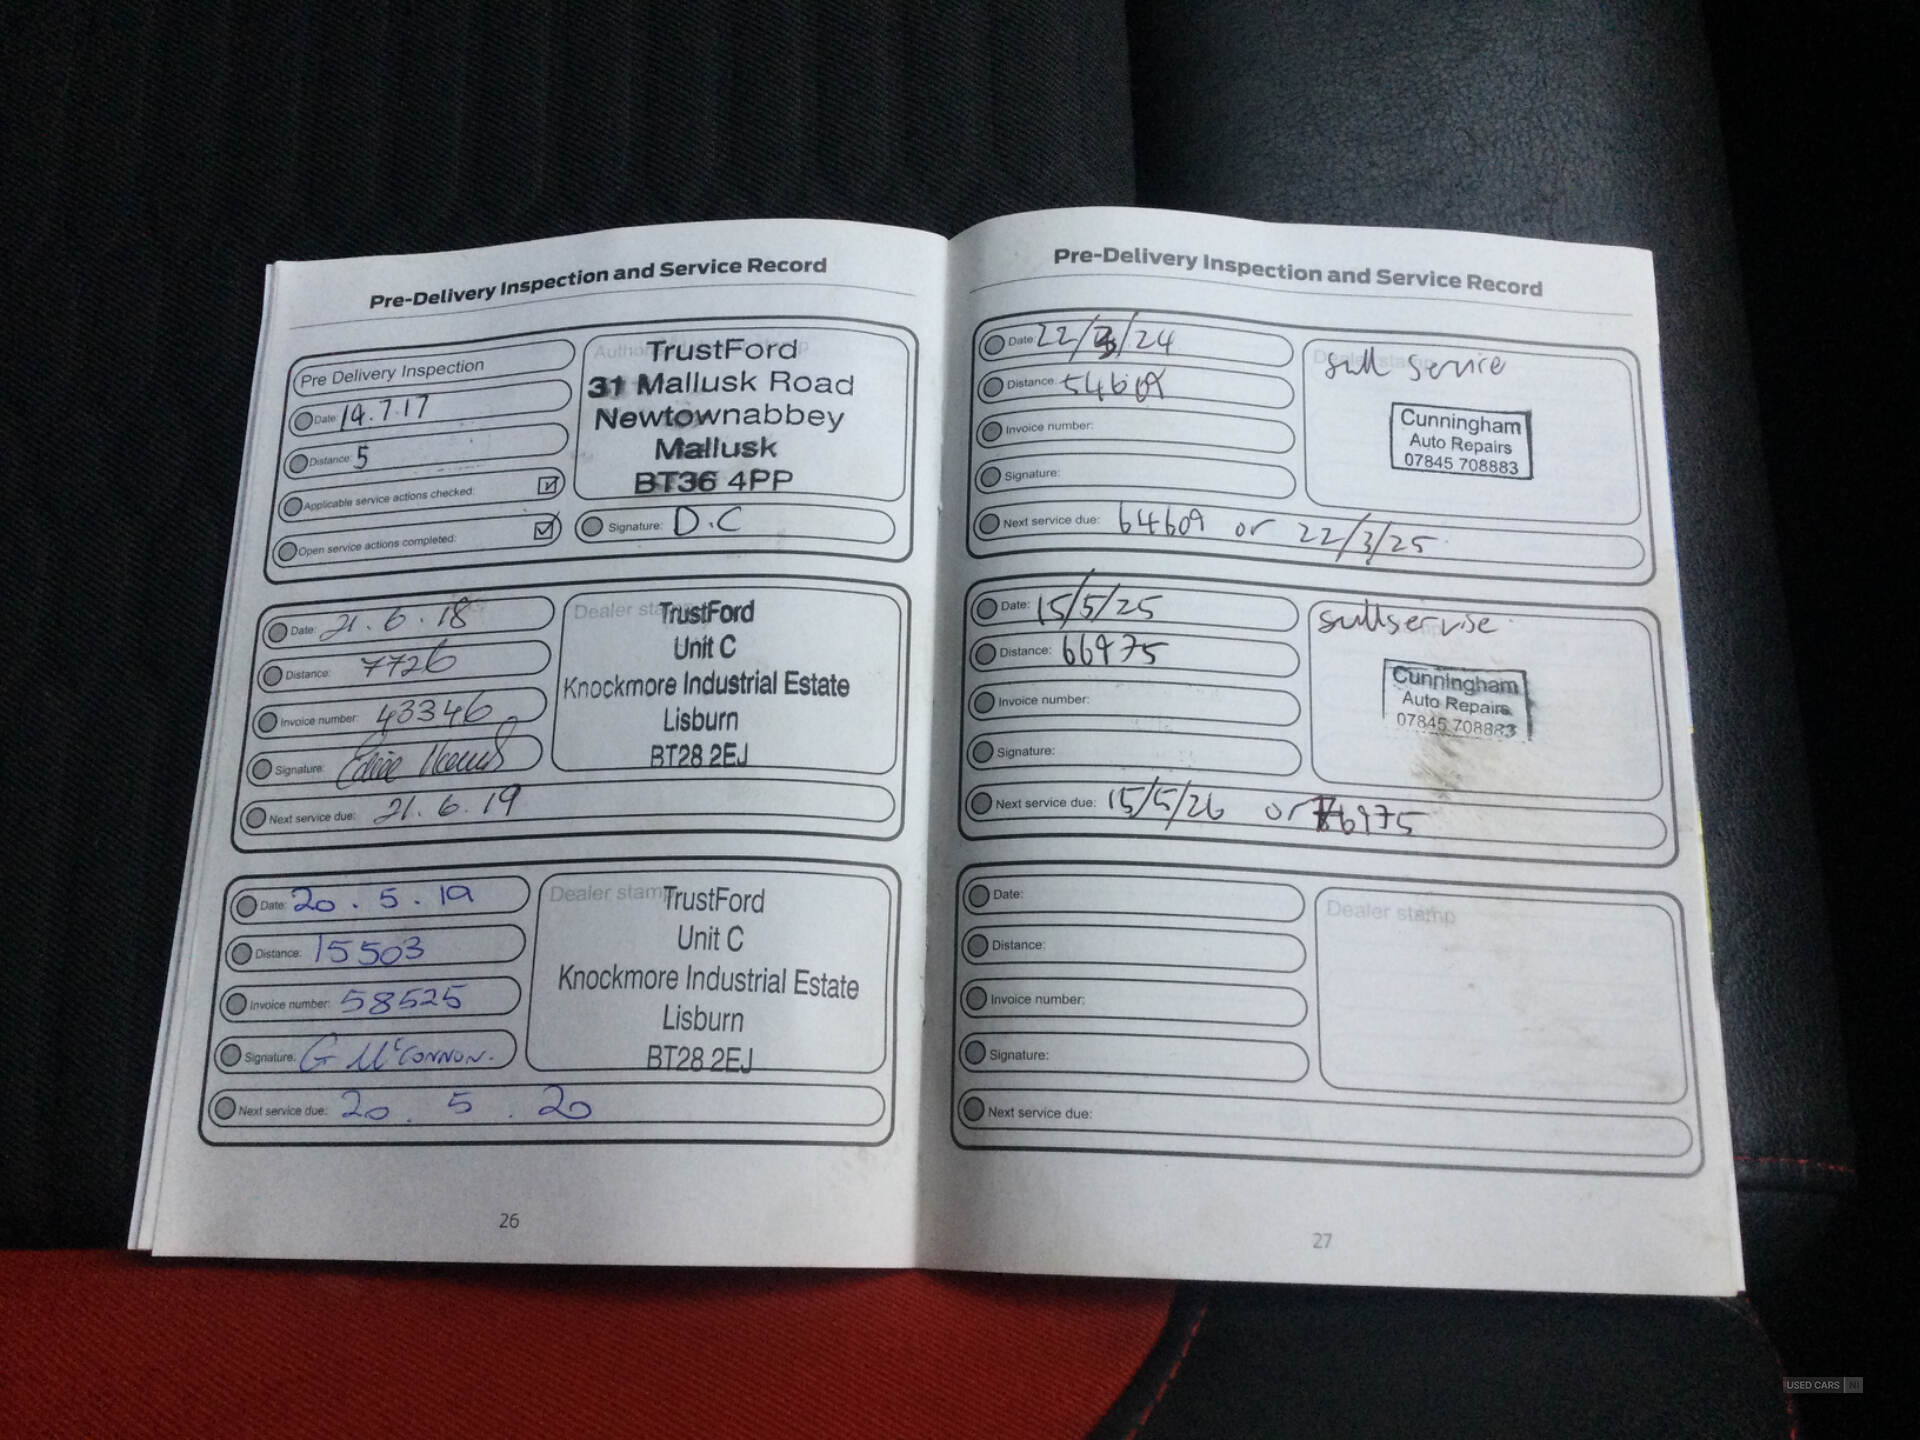 Pre-Delivery Inspection and Service Record
Pre Delivery Inspection
Date: 19.7.17
Distance: 5
Applicable service actions checked:
Open service actions completed:
TrustFord
31 Mallusk Road
Newtownabbey
Mallusk
BT36 4PP
Signature: D.C
Date: 21.6.18
Distance: 7726
Invoice number: 43346
Signature:
Next service due: 21.6.19
Dealer stamp
TrustFord
Unit C
Knockmore Industrial Estate
Lisburn
BT28 2EJ
Date: 20.5.19
Distance: 15503
Invoice number: 58525
Signature: G McConnon.
Next service due: 20.5.20
Dealer stamp
TrustFord
Unit C
Knockmore Industrial Estate
Lisburn
BT28 2EJ
26
Pre-Delivery Inspection and Service Record
Date: 22/3/24
Distance: 54609
Invoice number:
Signature:
Next service due: 64609 or 22/3/25
Dealer stamp
full service
Cunningham
Auto Repairs
07845 708883
Date: 15/5/25
Distance: 66975
Invoice number:
Signature:
Next service due: 15/5/26 or 76975
full servise
Cunningham
Auto Repairs
07845 708883
Date:
Distance:
Invoice number:
Signature:
Next service due:
Dealer stamp
27
USED CARS NI